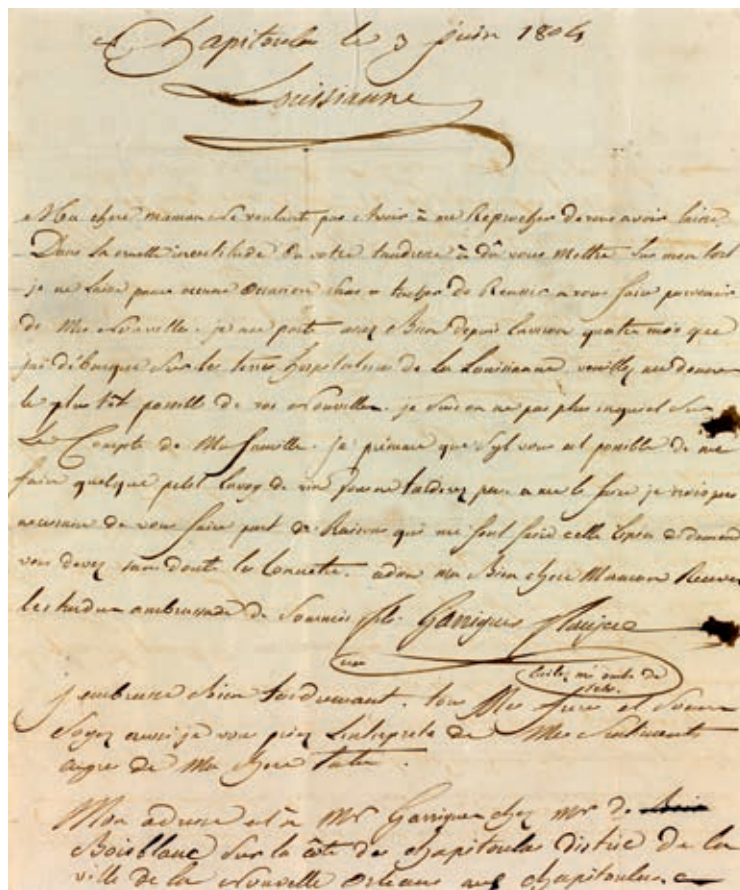 Chapitoula le 3 juin 1804
Louissianne
Ma chere maman ne voulant pas Avoir à me Reprocher de vous avoir laissé
Dans la cruelle incertitude ou votre tendresse à dû vous Mettre Sur mon sort
je ne laisse passer aucune Occasion Sans tacher de Reussir a vous faire parvenir
de Mes Nouvelles. je me porte assez Bien depuis Environ quatre mois que
jai débarqué Sur les terres hospitalieres de la Louisianne veuillez me donner
le plus tôt possible de vos Nouvelles. je suis on ne pas plus inquiet Sur
Le Compte de Ma famille. je présume que Syl vous est possible de me
faire quelque petit Envoy de vin vous ne tarderez pas a me le faire je crois pas
necessaire de vous faire part de Raisons qui me font faire cette Espece de demande
vous devez sans doute les Connetre. adieu ma Bien chere Maman Recevez
les tendres ambrassade de fils Garrigues Flaujac
de
j'embrasse bien tendrement. tous Mes freres et Soeurs
Soyez aussi je vous priez L'interprete de Mes Sentiments
aupres de Ma chere tante.
Mon adresse est à Mr Garrigues chez Mr de
Boisblanc Sur la côte de Chapitoulas district de la
ville de la Nouvelle Orleans aux Chapitoulas